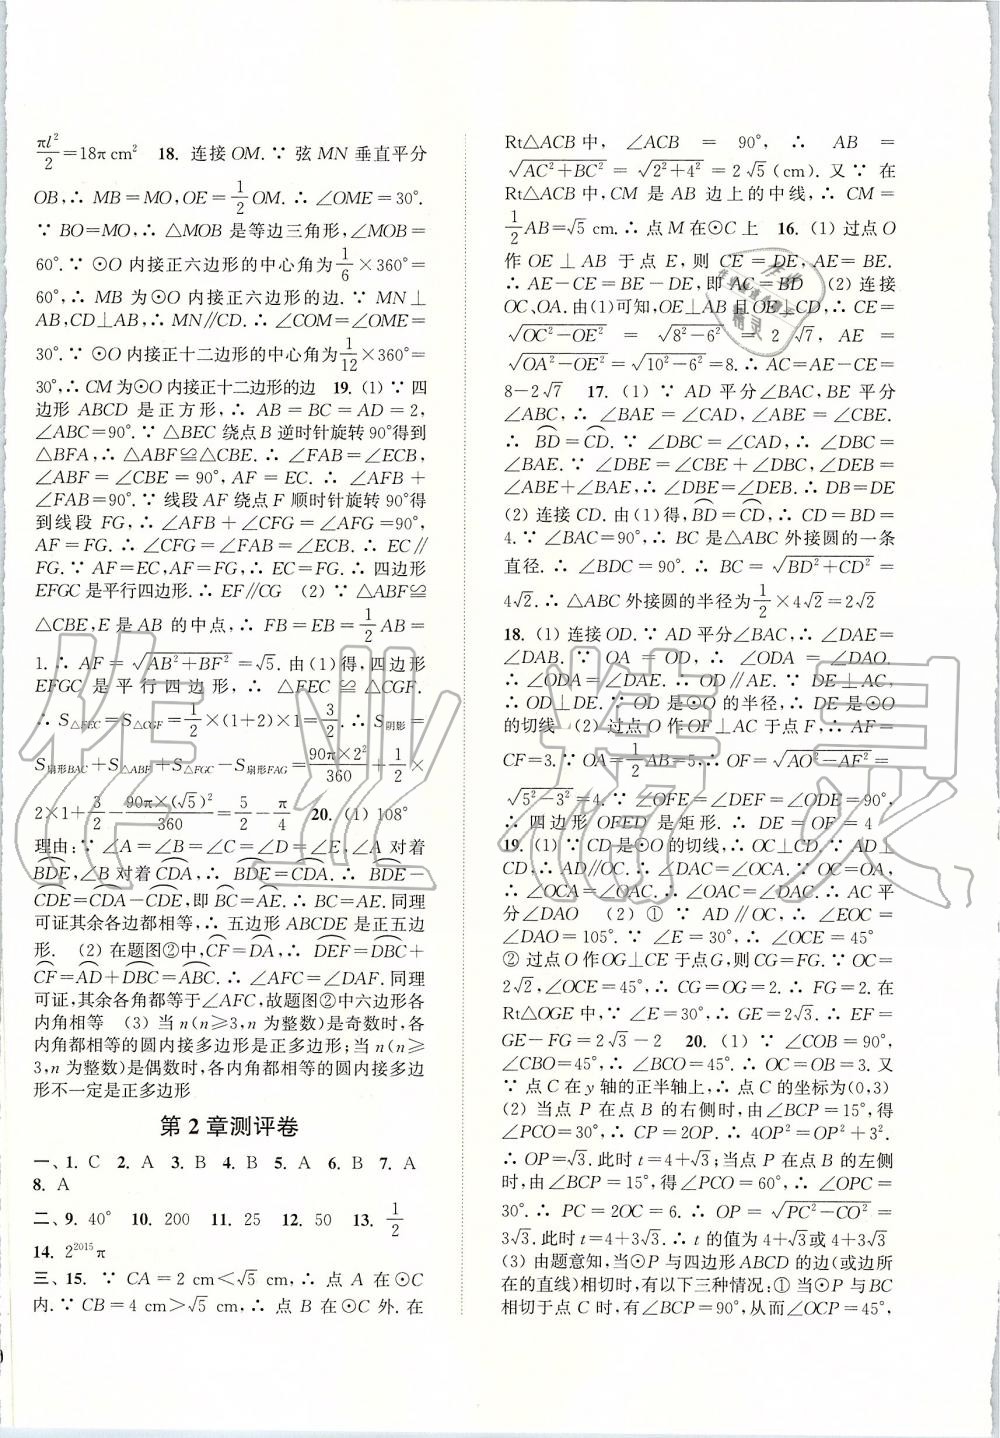 πl²/2=18π cm² 18. 连接 OM.∵ 弦 MN 垂直平分
OB,∴ MB=MO,OE=1/2OM.∴ ∠OME=30°.
∵ BO=MO,∴ △MOB 是等边三角形,∠MOB=
60°.∵ ⊙O 内接正六边形的中心角为1/6×360°=
60°,∴ MB 为⊙O 内接正六边形的边.∵ MN⊥
AB,CD⊥AB,∴ MN∥CD.∴ ∠COM=∠OME=
30°.∵ ⊙O 内接正十二边形的中心角为1/12×360°=
30°,∴ CM 为⊙O 内接正十二边形的边 19. (1) ∵ 四
边形 ABCD 是正方形,∴ AB=BC=AD=2,
∠ABC=90°.∵ △BEC 绕点 B 逆时针旋转 90°得到
△BFA,∴ △ABF≌△CBE.∴ ∠FAB=∠ECB,
∠ABF=∠CBE=90°,AF=EC.∴ ∠AFB+
∠FAB=90°.∵ 线段 AF 绕点 F 顺时针旋转 90°得
到线段 FG,∴ ∠AFB+∠CFG=∠AFG=90°,
AF=FG.∴ ∠CFG=∠FAB=∠ECB.∴ EC∥
FG.∵ AF=EC,AF=FG,∴ EC=FG.∴ 四边形
EFGC 是平行四边形.∴ EF∥CG (2) ∵ △ABF≌
△CBE,E 是 AB 的中点,∴ FB=EB=1/2AB=
1.∴ AF=√(AB²+BF²)=√5.由(1)得,四边形
EFGC 是平行四边形,∴ △FEC≌△CGF.
∴ S△FEC=S△CGF=1/2×(1+2)×1=3/2.∴ S阴影=
S扇形BAC+S△ABF+S△FGC−S扇形FAG=90π×2²/360+1/2×
2×1+3/2−90π×(√5)²/360=5/2−π/4 20. (1) 108°
理由:∵ ∠A=∠B=∠C=∠D=∠E,∠A 对着
⌒BDE,∠B 对着⌒CDA,∴ ⌒BDE=⌒CDA.∴ ⌒BDE−
⌒CDE=⌒CDA−⌒CDE,即⌒BC=⌒AE.∴ BC=AE.同理
可证其余各边都相等,∴ 五边形 ABCDE 是正五边
形. (2) 在题图②中,⌒CF=⌒DA,∴ ⌒DEF=⌒DBC+
⌒CF=⌒AD+⌒DBC=⌒ABC.∴ ∠AFC=∠DAF.同理
可证,其余各角都等于∠AFC,故题图②中六边形各
内角相等 (3) 当 n(n≥3,n 为整数)是奇数时,各
内角都相等的圆内接多边形是正多边形;当 n(n≥
3,n 为整数)是偶数时,各内角都相等的圆内接多边
形不一定是正多边形
第 2 章测评卷
一、1. C 2. A 3. B 4. B 5. A 6. B 7. A
8. A
二、9. 40° 10. 200 11. 25 12. 50 13. 1/2
14. 2²⁰¹⁵π
三、15. ∵ CA=2 cm<√5 cm,∴ 点 A 在⊙C
内.∵ CB=4 cm>√5 cm,∴ 点 B 在⊙C 外.在
Rt△ACB 中,∠ACB=90°,∴ AB=
√(AC²+BC²)=√(2²+4²)=2√5(cm).又∵ 在
Rt△ACB 中,CM 是 AB 边上的中线,∴ CM=
1/2AB=√5 cm.∴ 点 M 在⊙C 上 16. (1) 过点 O
作 OE⊥AB 于点 E,则 CE=DE,AE=BE.
∴ AE−CE=BE−DE,即 AC=BD (2) 连接
OC、OA.由(1)可知,OE⊥AB 且 OE⊥CD,∴ CE=
√(OC²−OE²)=√(8²−6²)=2√7,AE=
√(OA²−OE²)=√(10²−6²)=8.∴ AC=AE−CE=
8−2√7 17. (1) ∵ AD 平分∠BAC,BE 平分
∠ABC,∴ ∠BAE=∠CAD,∠ABE=∠CBE.
∴ ⌒BD=⌒CD.∴ ∠DBC=∠CAD,∴ ∠DBC=
∠BAE.∵ ∠DBE=∠CBE+∠DBC,∠DEB=
∠ABE+∠BAE,∴ ∠DBE=∠DEB.∴ DB=DE
(2) 连接 CD.由(1)得,⌒BD=⌒CD,∴ CD=BD=
4.∵ ∠BAC=90°,∴ BC 是△ABC 外接圆的一条
直径.∴ ∠BDC=90°.∴ BC=√(BD²+CD²)=
4√2.∴ △ABC 外接圆的半径为1/2×4√2=2√2
18. (1) 连接 OD.∵ AD 平分∠BAC,∴ ∠DAE=
∠DAB.∵ OA=OD,∴ ∠ODA=∠DAO.
∴ ∠ODA=∠DAE.∴ OD∥AE.∵ DE⊥AC,
∴ OD⊥DE.∵ OD 是⊙O 的半径,∴ DE 是⊙O
的切线 (2) 过点 O 作 OF⊥AC 于点 F,∴ AF=
CF=3.∵ OA=1/2AB=5,∴ OF=√(AO²−AF²)=
√(5²−3²)=4.∵ ∠OFE=∠DEF=∠ODE=90°,
∴ 四边形 OFED 是矩形.∴ DE=OF=4
19. (1) ∵ CD 是⊙O 的切线,∴ OC⊥CD.∵ AD⊥
CD,∴ AD∥OC.∴ ∠DAC=∠OCA.∵ OC=OA,
∴ ∠OCA=∠OAC.∴ ∠OAC=∠DAC.∴ AC 平
分∠DAO (2) ① ∵ AD∥OC,∴ ∠EOC=
∠DAO=105°.∵ ∠E=30°,∴ ∠OCE=45°
② 过点 O 作 OG⊥CE 于点 G,则 CG=FG.∵ OC=
2√2,∠OCE=45°,∴ CG=OG=2.∴ FG=2.在
Rt△OGE 中,∵ ∠E=30°,∴ GE=2√3.∴ EF=
GE−FG=2√3−2 20. (1) ∵ ∠COB=90°,
∠CBO=45°,∴ ∠BCO=45°.∴ OC=OB=3.又
∵ 点 C 在 y 轴的正半轴上,∴ 点 C 的坐标为(0,3)
(2) 当点 P 在点 B 的右侧时,由∠BCP=15°,得
∠PCO=30°.∴ CP=2OP.∴ 4OP²=OP²+3².
∴ OP=√3.此时 t=4+√3;当点 P 在点 B 的左侧
时,由∠BCP=15°,得∠PCO=60°,∴ ∠OPC=
30°.∴ PC=2OC=6.∴ OP=√(PC²−CO²)=
3√3.此时 t=4+3√3.∴ t 的值为 4+√3或 4+3√3
(3) 由题意知,当⊙P 与四边形 ABCD 的边(或边所
在的直线)相切时,有以下三种情况:① 当⊙P 与 BC
相切于点 C 时,有∠BCP=90°,从而∠OCP=45°,
作业精灵